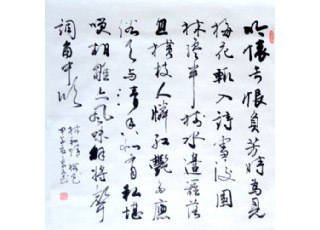 吟懷長恨負芳時為見
梅花輒入詩雪後園
林纔半樹水邊籬落
忽橫枝人憐紅艷多應
俗天與清香似有私堪
笑胡雛亦風味解將聲
調角中吹
林和靖